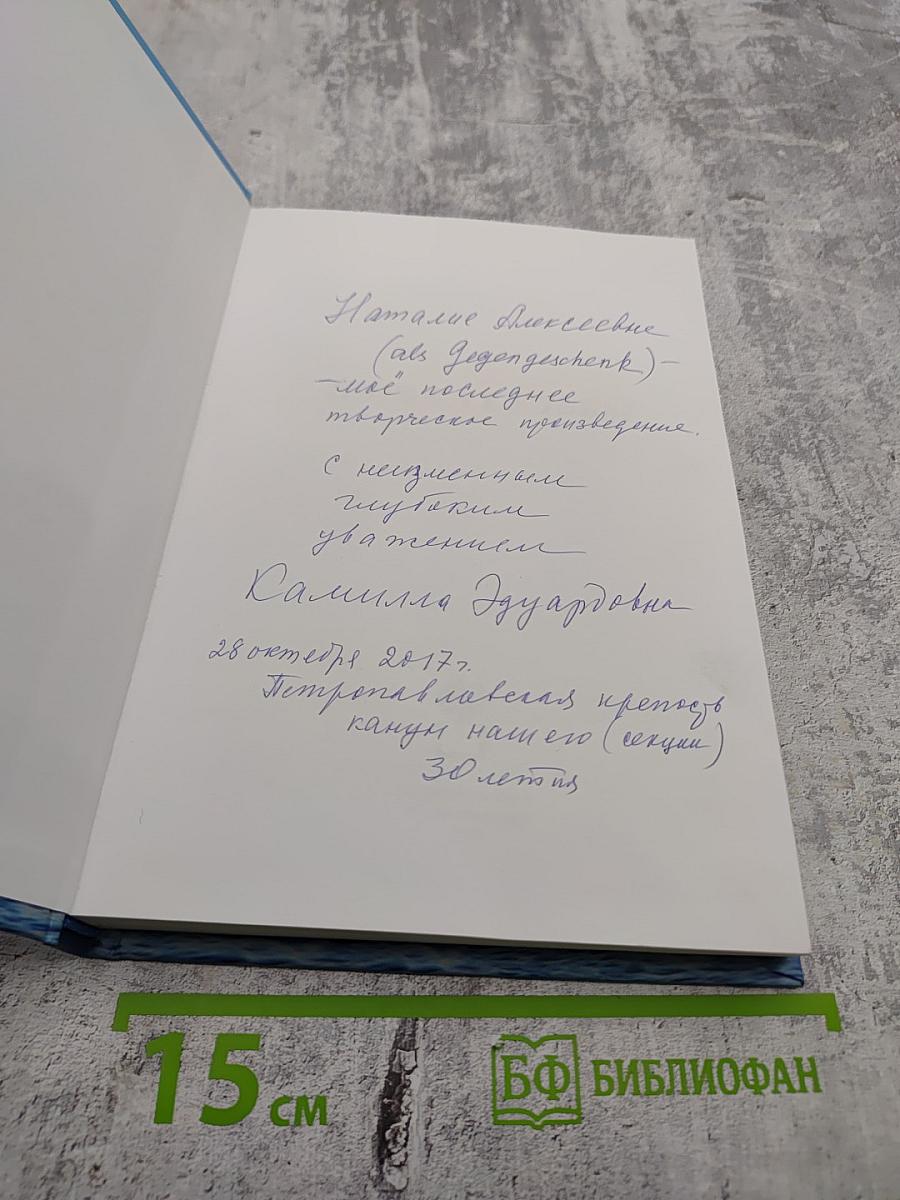 Наталие Алексеевне
(als Gegengeschenk)–
–моё последнее
творческое произведение.
С неизменным
глубоким
уважением
Камилла Эдуардовна
28 октября 2017 г.
Петропавловская крепость
канун нашего (секции)
30 летия
15 см
БФ БИБЛИОФАН